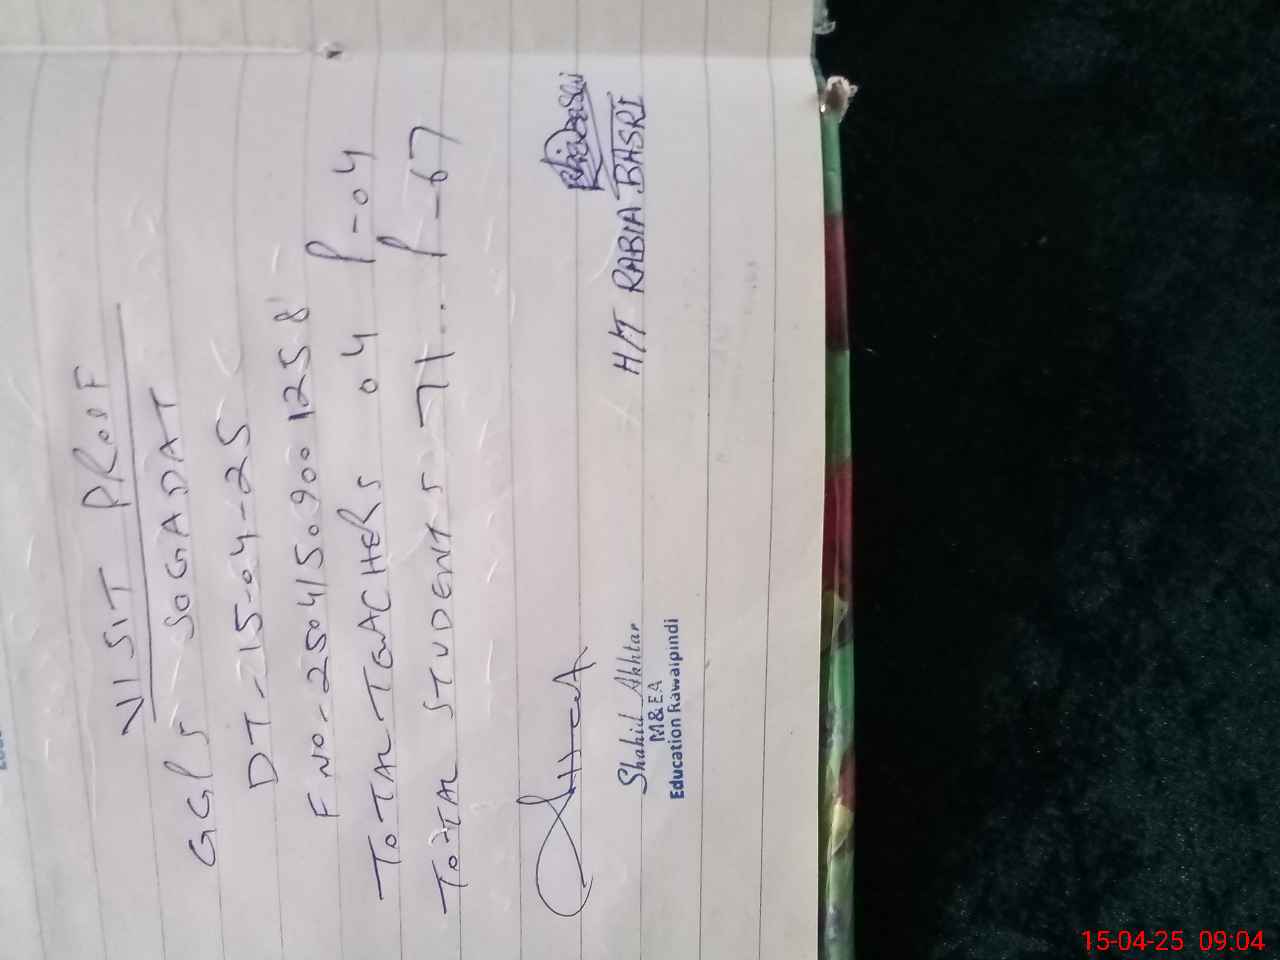 VISIT PROOF
GGPS SOGADAT
DT-15-04-25
F NO-25041509001258
TOTAL TEACHERS 04 P-04
TOTAL STUDENTS 71.. P-67
Shahid Akhtar
M&EA
Education Rawalpindi
H/T RABIA BASRI
15-04-25 09:04